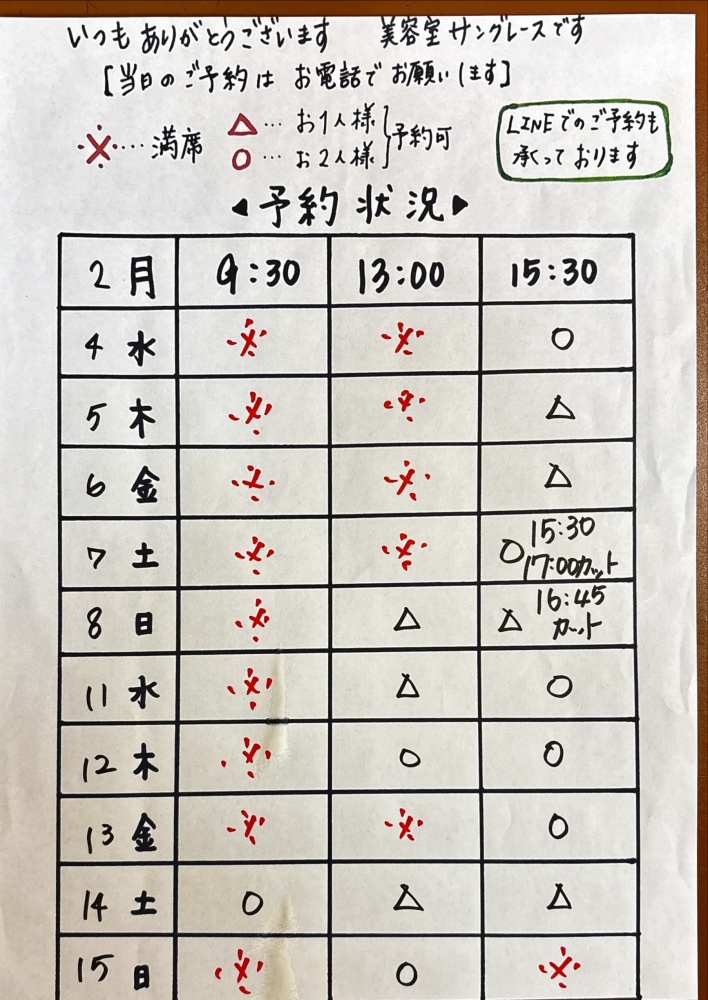 いつもありがとうございます 美容室サングレースです
[当日のご予約は お電話で お願いします]
※…満席 △…お1人様 ○…お2人様 予約可
LINEでのご予約も
承っております
◀予約状況▶
2月 9:30 13:00 15:30
4 水 ※ ※ ○
5 木 ※ ※ △
6 金 ※ ※ △
7 土 ※ ※ ○ 15:30 17:00カット
8 日 ※ △ △ 16:45 カット
11 水 ※ △ ○
12 木 ※ ○ ○
13 金 ※ ※ ○
14 土 ○ △ △
15 日 ※ ○ ※